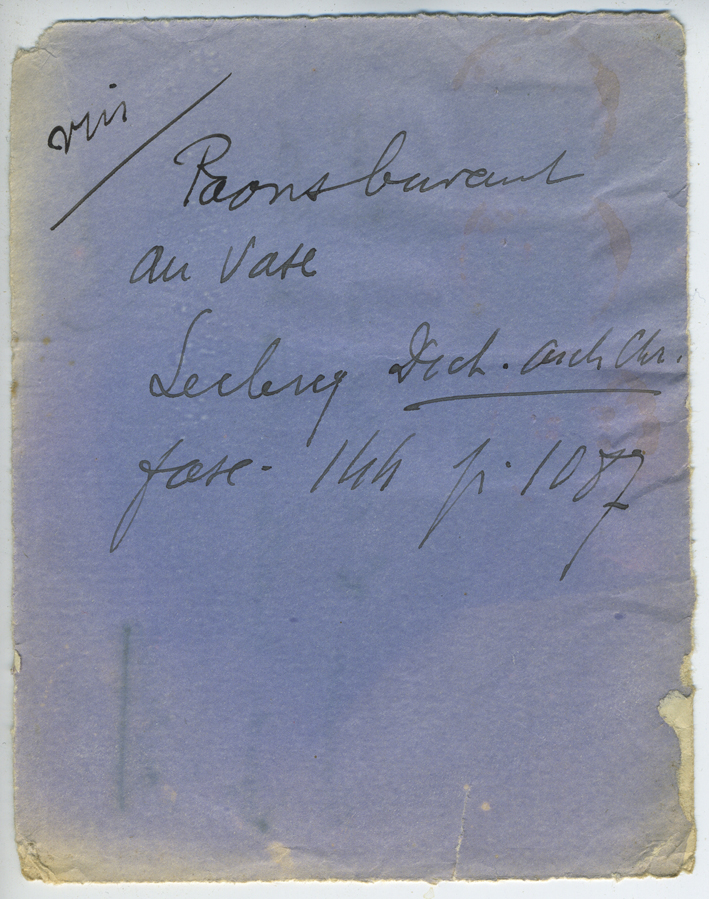 vin
Paons buvant
au Vase
Leclercq Dict. arch Chr.
fasc. 144 p. 1087